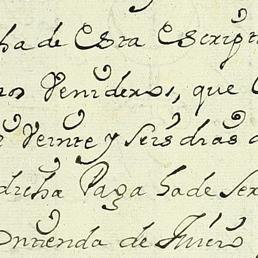 ha de esta escript
ros Venideros, que
Veinte y seis dias
dicha Paga ha de ser
ontienda de Juicio